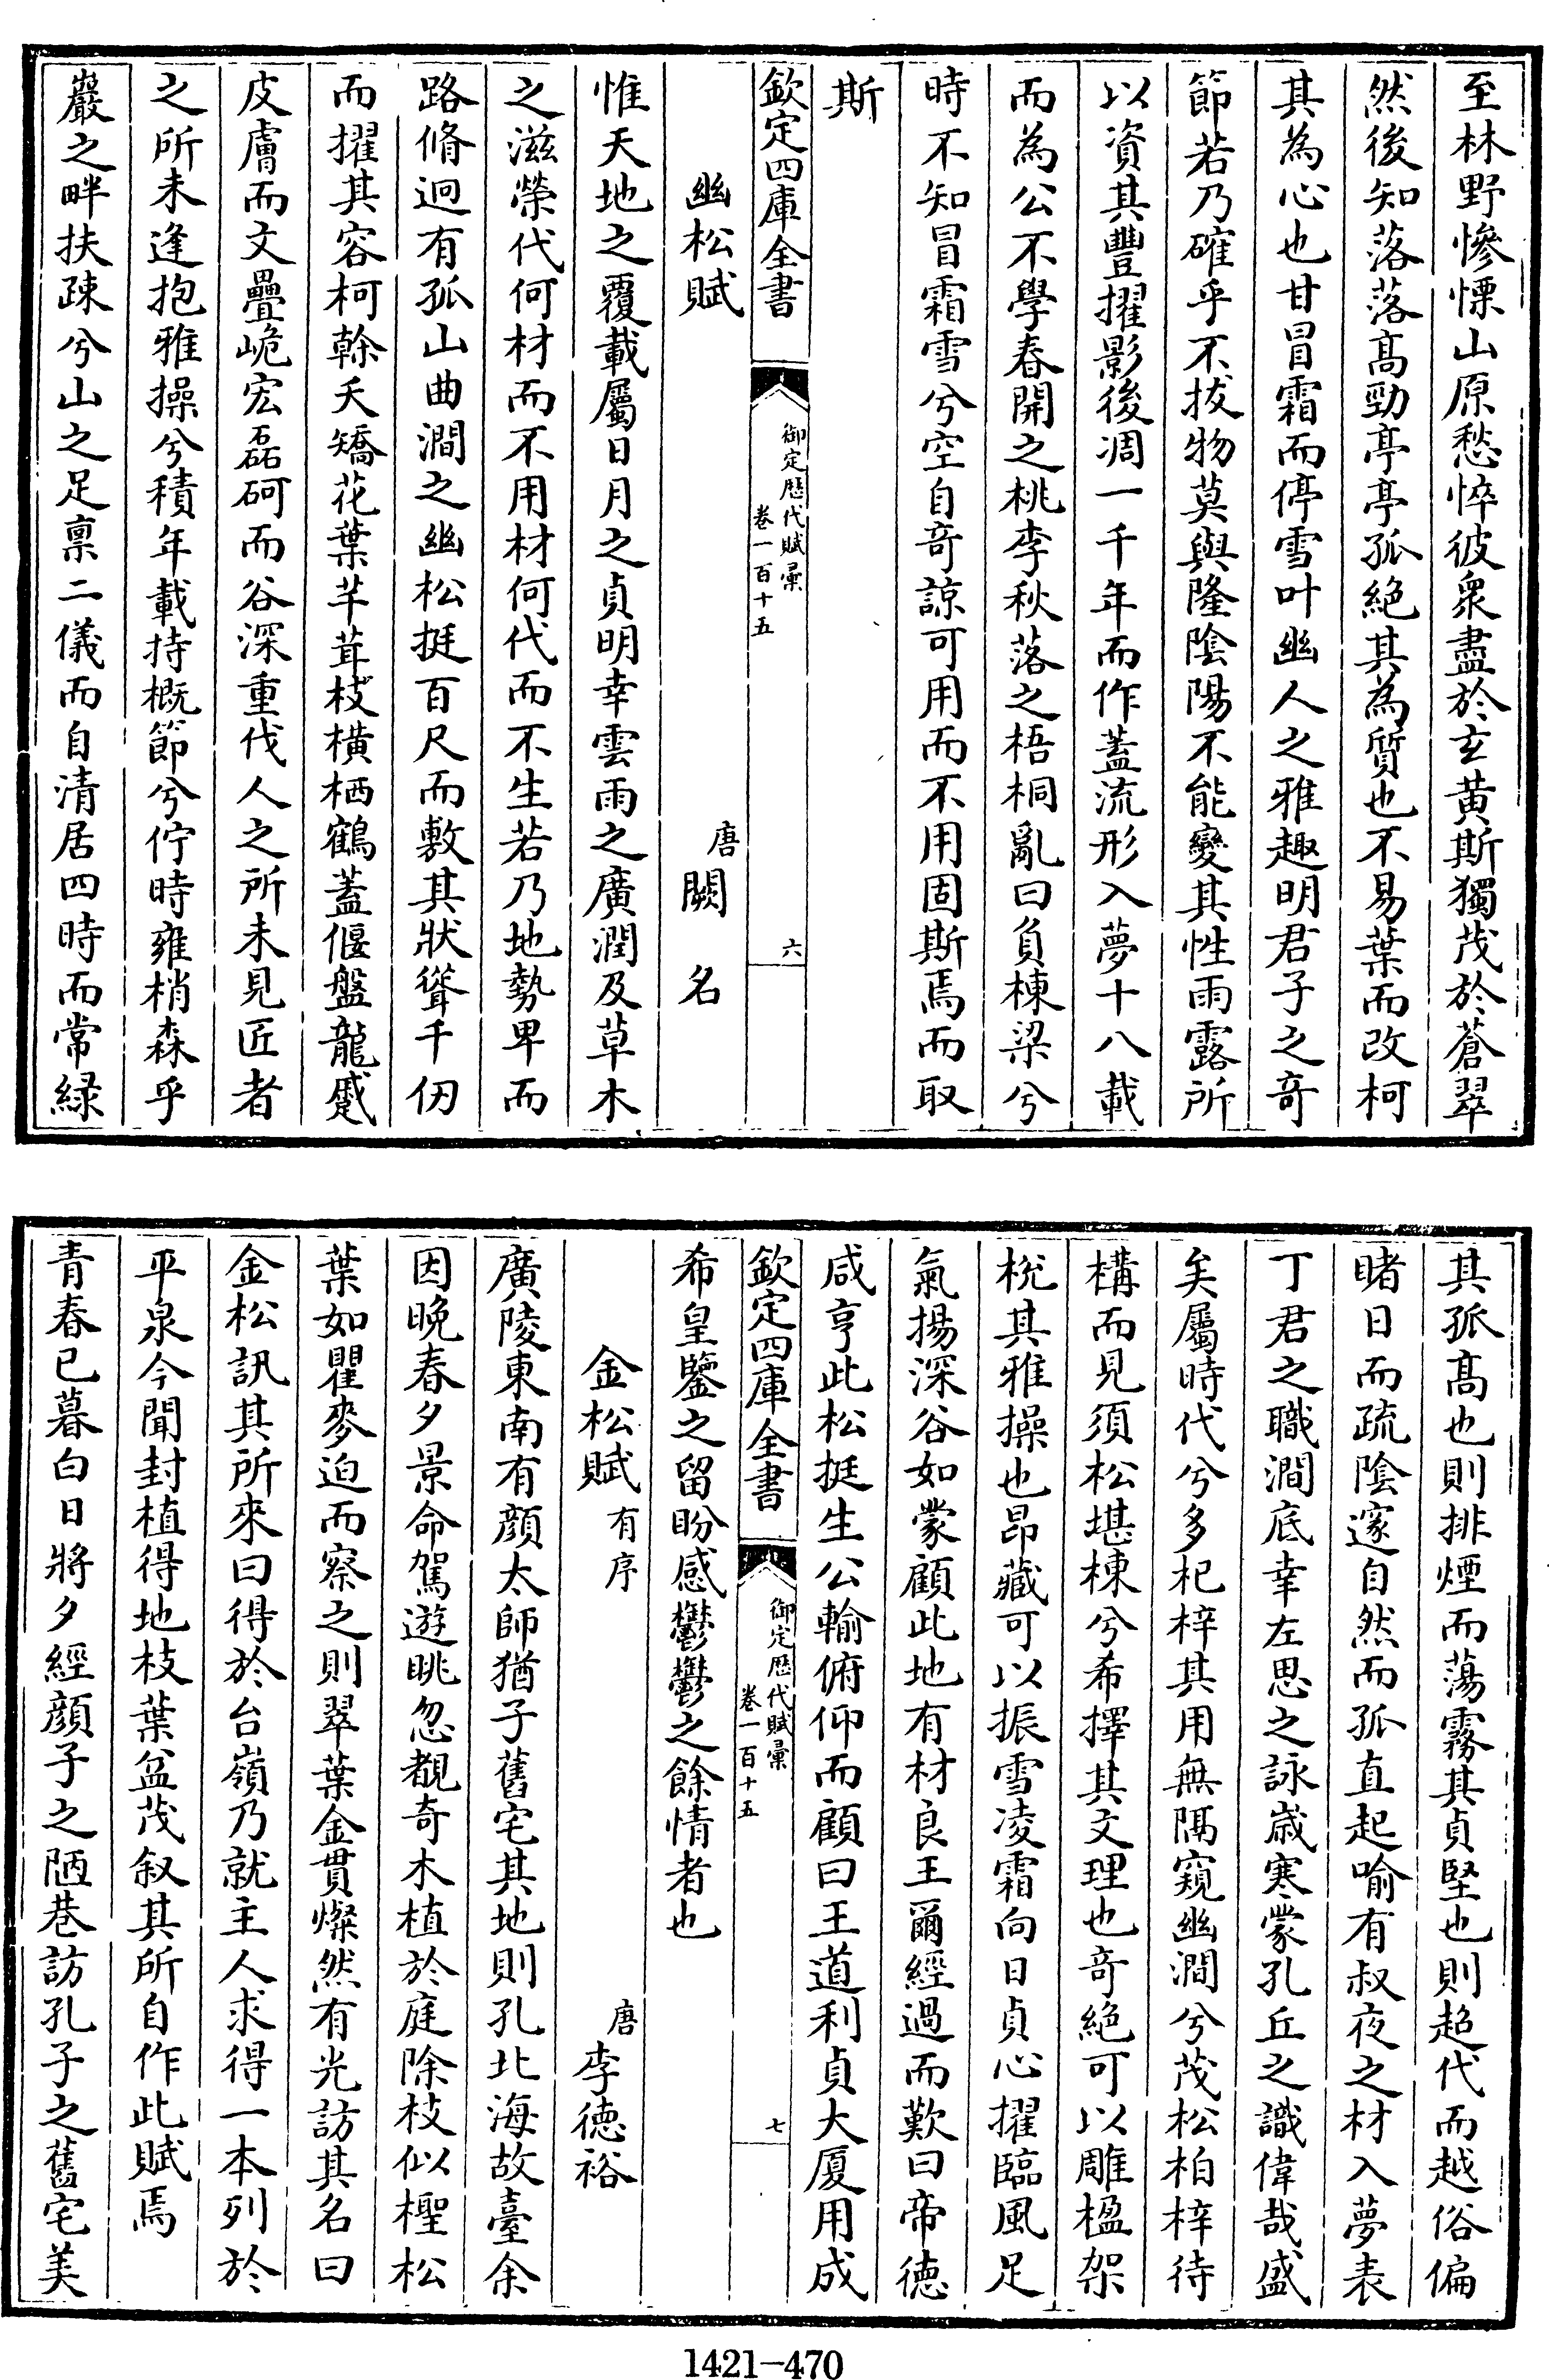 至林野慘慄山原愁悴彼衆盡於玄黄斯獨茂於蒼翠
然後知落落髙勁亭亭孤絶其為質也不易葉而改柯
其為心也甘冒霜而停雪叶幽人之雅趣明君子之竒
節若乃確乎不拔物莫與隆陰陽不能變其性雨露所
以資其豐擢影後凋一千年而作蓋流形入夢十八載
而為公不學春開之桃李秋落之梧桐亂曰負棟梁兮
時不知冒霜雪兮空自竒諒可用而不用固斯焉而取
斯
欽定四庫全書
御定歴代賦彙
卷一百十五
六
幽松賦
唐闕名
惟天地之覆載屬日月之貞明幸雲雨之廣潤及草木
之滋榮代何材而不用材何代而不生若乃地勢卑而
路脩迥有孤山曲澗之幽松挺百尺而敷其狀聳千仞
而擢其容柯榦夭矯花葉芊茸枝横栖鶴蓋偃盤龍蹙
皮膚而文疊峗宏磊砢而谷深重伐人之所未見匠者
之所未逢抱雅操兮積年載持概節兮佇時雍梢森乎
巖之畔扶疎兮山之足禀二儀而自清居四時而常緑
其孤髙也則排煙而蕩霧其貞堅也則超代而越俗偏
睹日而疏陰邃自然而孤直起喻有叔夜之材入夢表
丁君之職澗底幸左思之詠嵗寒蒙孔丘之識偉哉盛
矣屬時代兮多杞梓其用無隅窺幽澗兮茂松柏梓待
構而見須松堪棟兮希擇其文理也竒絶可以雕楹架
梲其雅操也昂藏可以振雪凌霜向日貞心擢臨風足
氣揚深谷如蒙顧此地有材良王爾經過而歎曰帝徳
咸亨此松挺生公輸俯仰而顧曰王道利貞大厦用成
欽定四庫全書
御定歴代賦彙
卷一百十五
七
希皇鑒之留盼感鬱鬱之餘情者也
金松賦有序
唐李徳裕
廣陵東南有顔太師猶子舊宅其地則孔北海故臺余
因晩春夕景命駕遊眺忽覩奇木植於庭除枝似檉松
葉如瞿麥迫而察之則翠葉金貫燦然有光訪其名曰
金松訊其所來曰得於台嶺乃就主人求得一本列於
平泉今聞封植得地枝葉盆茂叙其所自作此賦焉
青春已暮白日將夕經顔子之陋巷訪孔子之舊宅美
1421-470